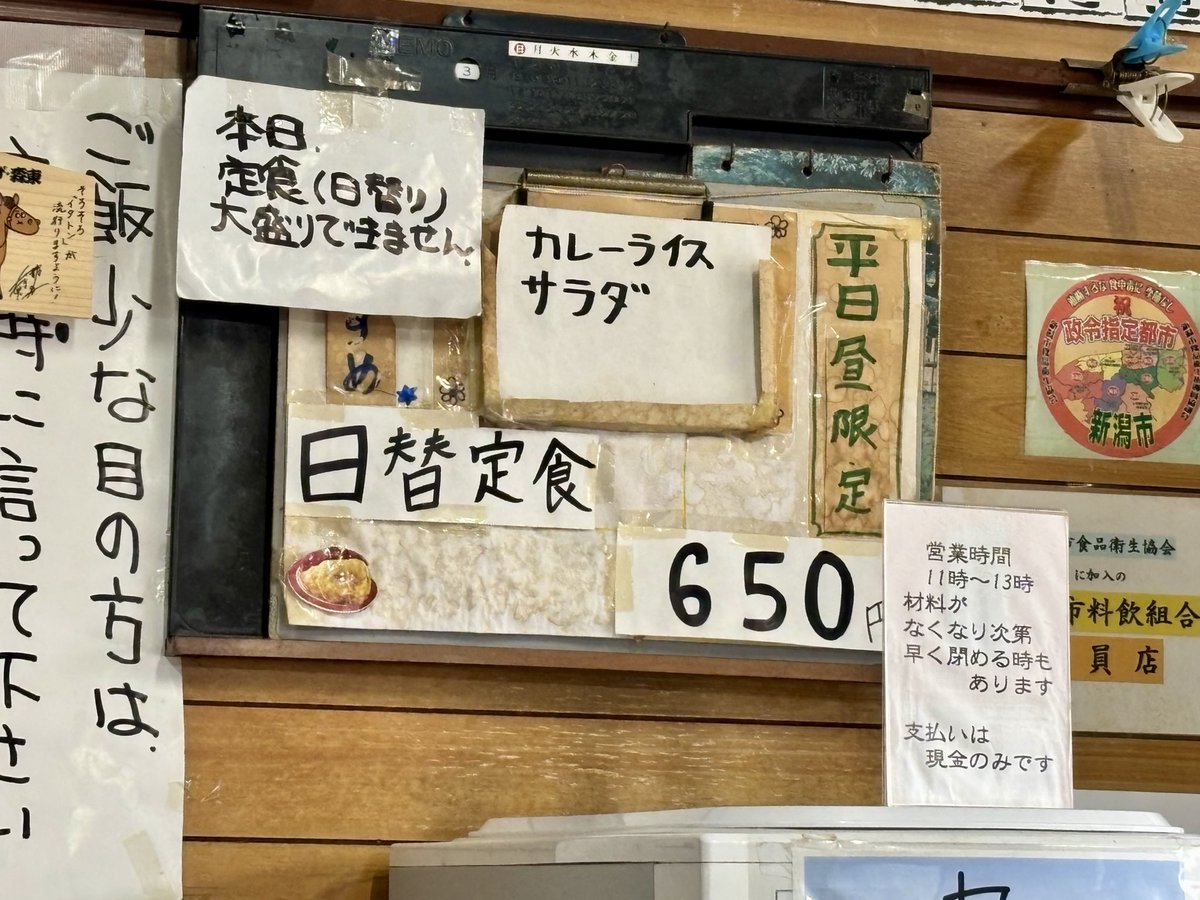 ご飯少な目の方は
時に言って下さい
本日
定食（日替り）
大盛りできません
MEMO
日月火水木金土
3
カレーライス
サラダ
平日昼限定
すめ
日替定食
650
円
森東
そろそろ
「イタトン」が
流行りますように！
祝
政令指定都市
新潟市
営業時間
11時〜13時
材料が
なくなり次第
早く閉める時も
あります
支払いは
現金のみです
食品衛生協会
に加入の
市料飲組合
員店